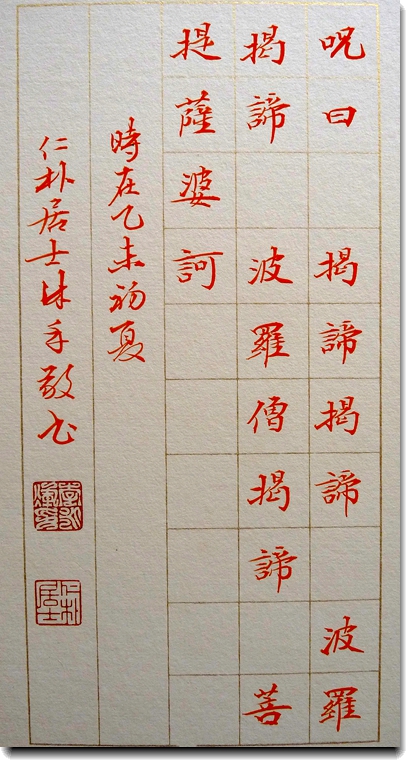 呪曰 揭諦揭諦 波羅
揭諦 波羅僧揭諦 菩
提薩婆訶
時在乙未初夏
仁朴居士沐手敬书
仁朴居士